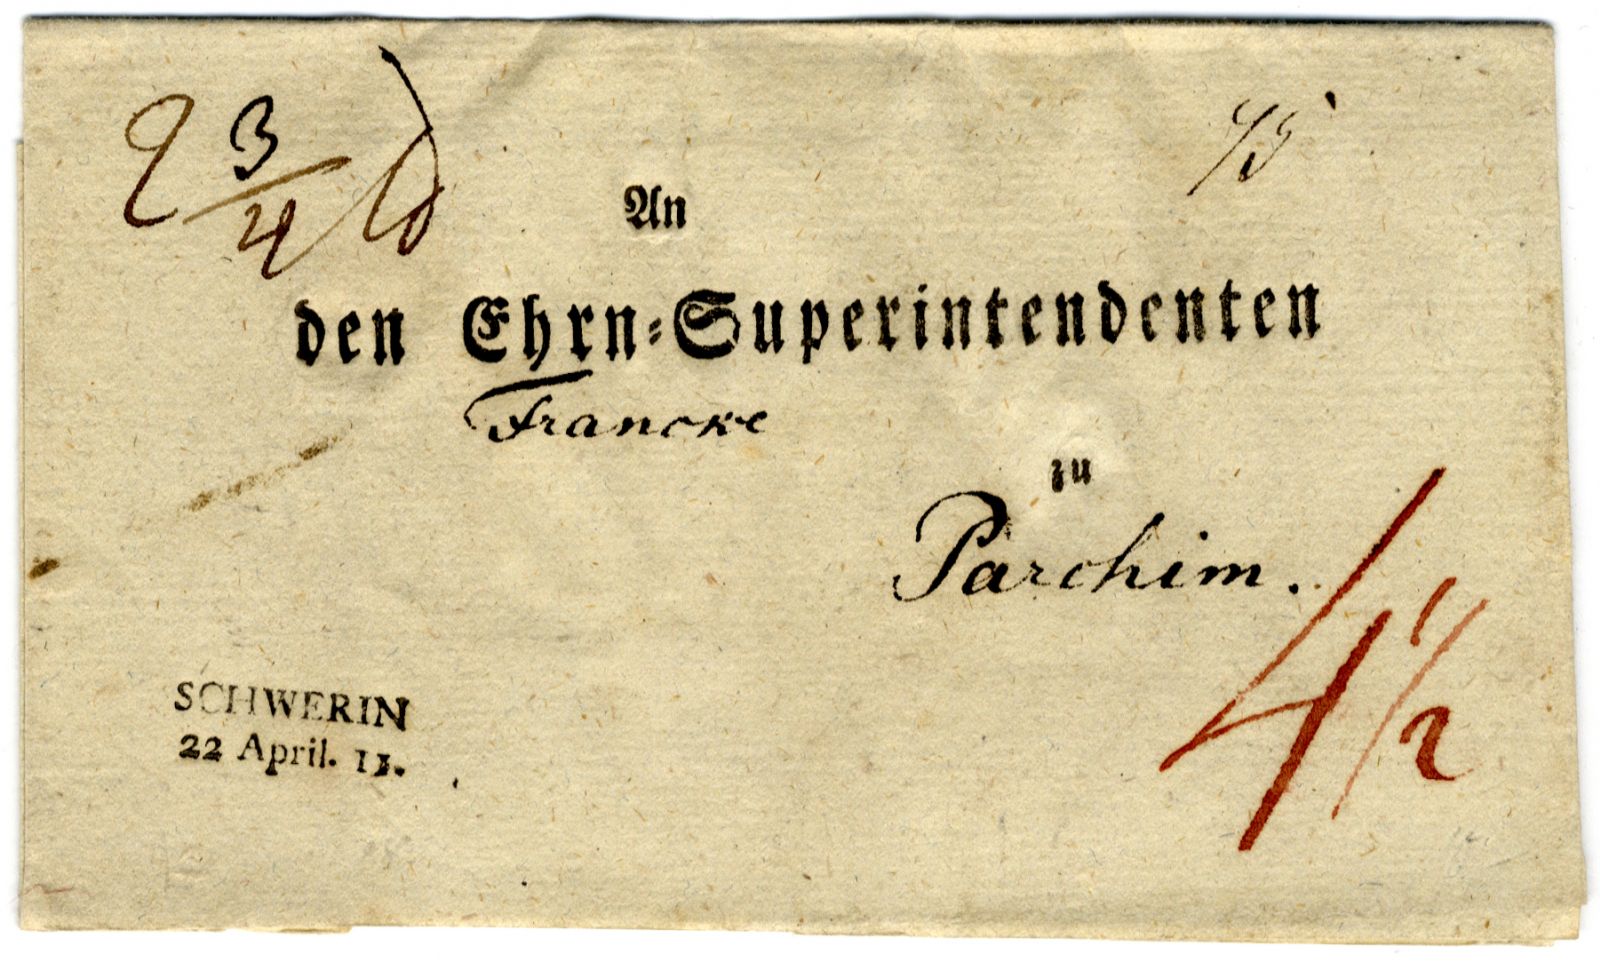 2 3/4
An
den Ehrn-Superintendenten
Francke
zu
Parchim.
4 1/2
SCHWERIN
22 April. 11.